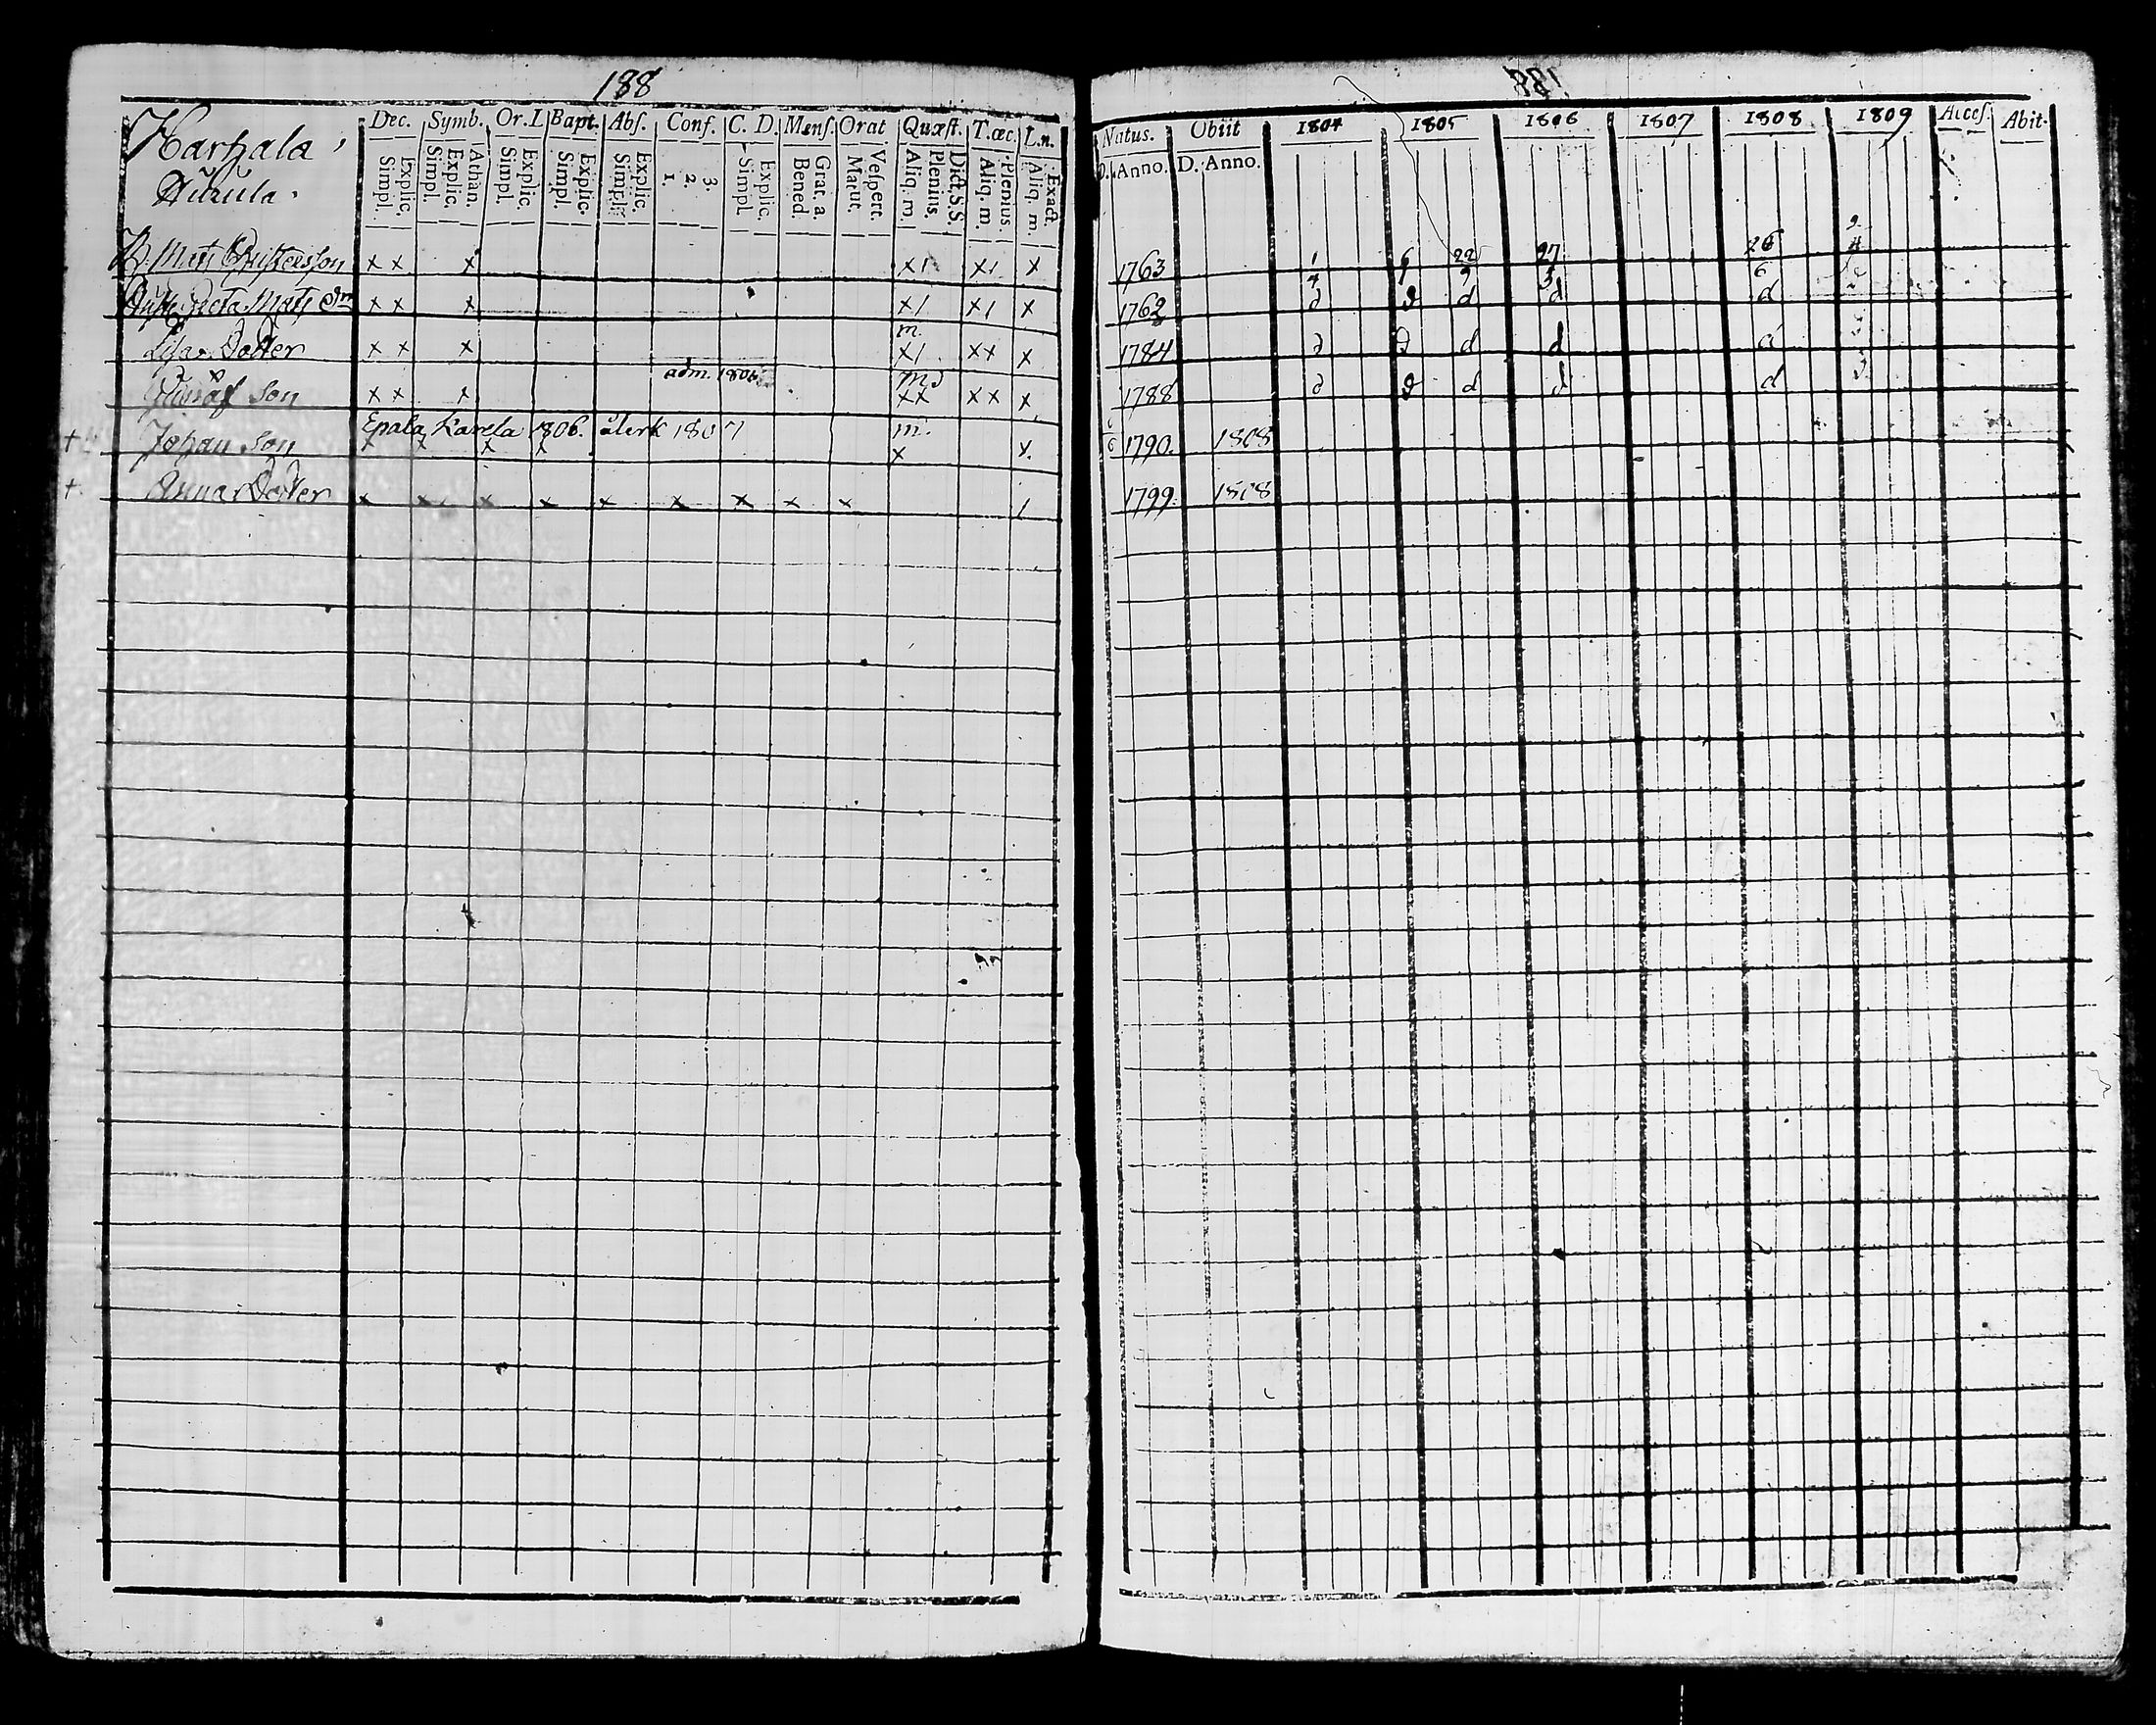 188
Harhala
Dec. Symb. Or. I. Bapt. Abs. Conf. C. D. Mens. Orat Quæst. T. œc. L. n.
Explic. Simpl. Athan. Explic. Simpl. Explic. Simpl. Explic. Simpl. Explic. Simpl. 3. 2. 1. Explic. Simpl. Grat. a. Bened. Vespert. Matut. Dict. S.S. Plenius. Aliq. m. Plenius. Aliq. m. Exact. Aliq. m.
B. Mats x x x x 1 x 1 x
Mats x x x x 1 x 1 x
m.
Lisa Dotter x x x x 1 x x x
adm. 1806
Gustaf Son x x x x x x x x
Epala Karela 1806. 1807 m.
+ Johan Son x x x x x x
+ Anna Dotter x x x x x x x x x 1
188
Natus. Obiit 1804 1805 1806 1807 1808 1809 Acces. Abit.
D. Anno. D. Anno.
1763 1 6 22 27 26 2
4 9 6 4
1762 d d d d d
1784 d d d d d
1788 d d d d d
1790. 1808
1799. 1808